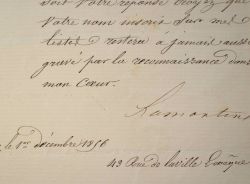 soit Votre réponse croyez que
Votre nom inscrit sur mes
listes d restera à jamais aussi
gravé par la reconnaissance dans
mon Cœur.
Lamartine
le 1er décembre 1856
43 Rue de la ville Lévêque